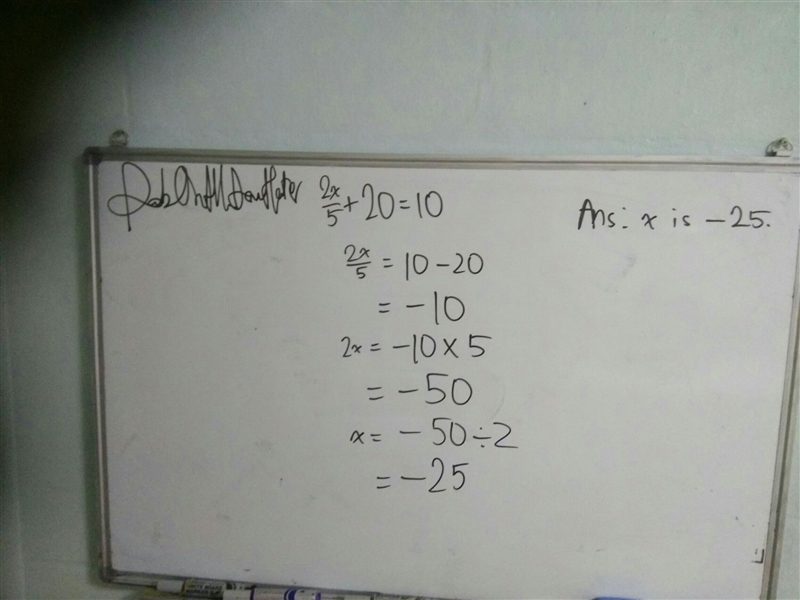 2x/5 + 20 = 10
Ans: x is -25.
2x/5 = 10 - 20
= -10
2x = -10 × 5
= -50
x = -50 ÷ 2
= -25